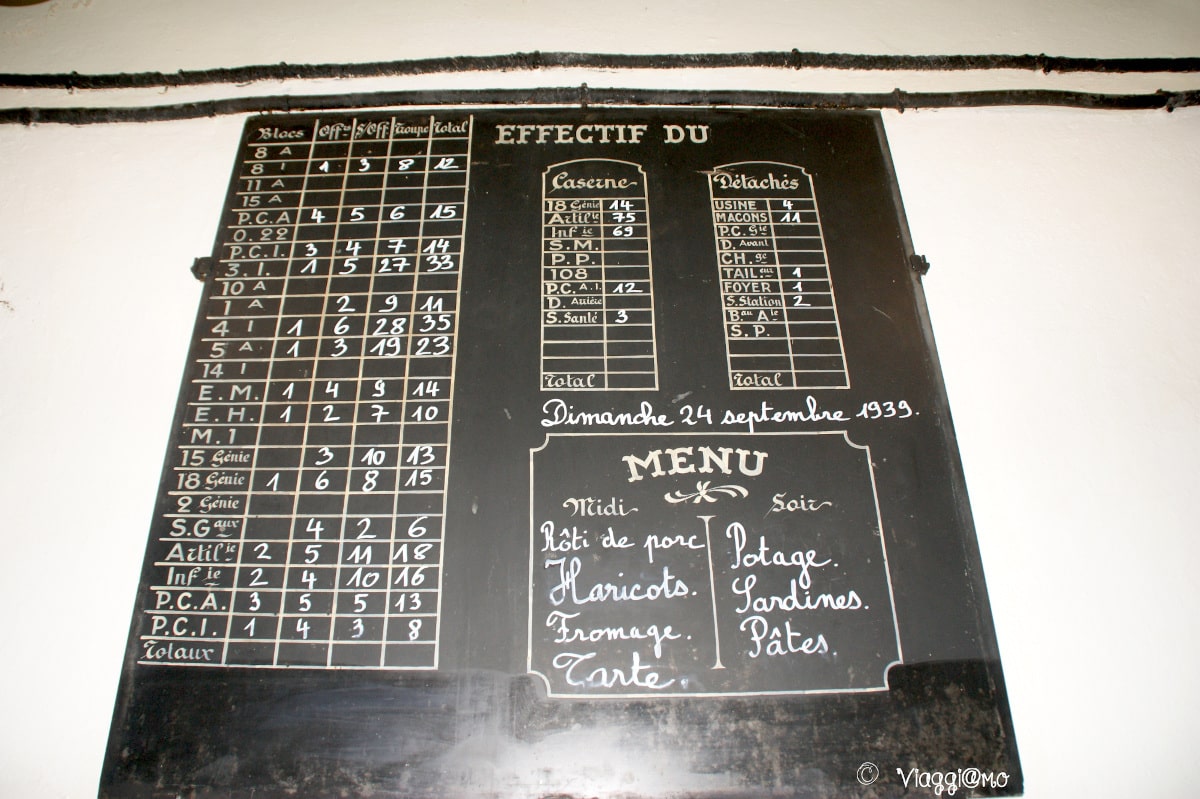 Blocs Off.rs S/Off Troupe Total
8 A
8 I 1 3 8 12
11 A
15 A
P.C.A 4 5 6 15
O.22
P.C.I. 3 4 7 14
3.I. 1 5 27 33
10 A
1 A 2 9 11
4 I 1 6 28 35
5 A 1 3 19 23
14 I
E.M. 1 4 9 14
E.H. 1 2 7 10
M.1
15 Génie 3 10 13
18 Génie 1 6 8 15
2 Génie
S.Gaux 4 2 6
Artilie 2 5 11 18
Infie 2 4 10 16
P.C.A. 3 5 5 13
P.C.I. 1 4 3 8
Totaux
EFFECTIF DU
Caserne
18 Génie 14
Artilie 75
Infie 69
S.M.
P.P.
108
P.C.A.I. 12
D. Arrière
S. Santé 3
Total
Détachés
USINE 4
MACONS 11
P.C. Gie
D. Avant
CH.ge
TAIL.eur 1
FOYER 1
S.Station 2
Bau Ale
S.P.
Total
Dimanche 24 septembre 1939.
MENU
Midi
Rôti de porc
Haricots.
Fromage.
Tarte.
Soir
Potage.
Sardines.
Pâtes.
© Viaggi@mo